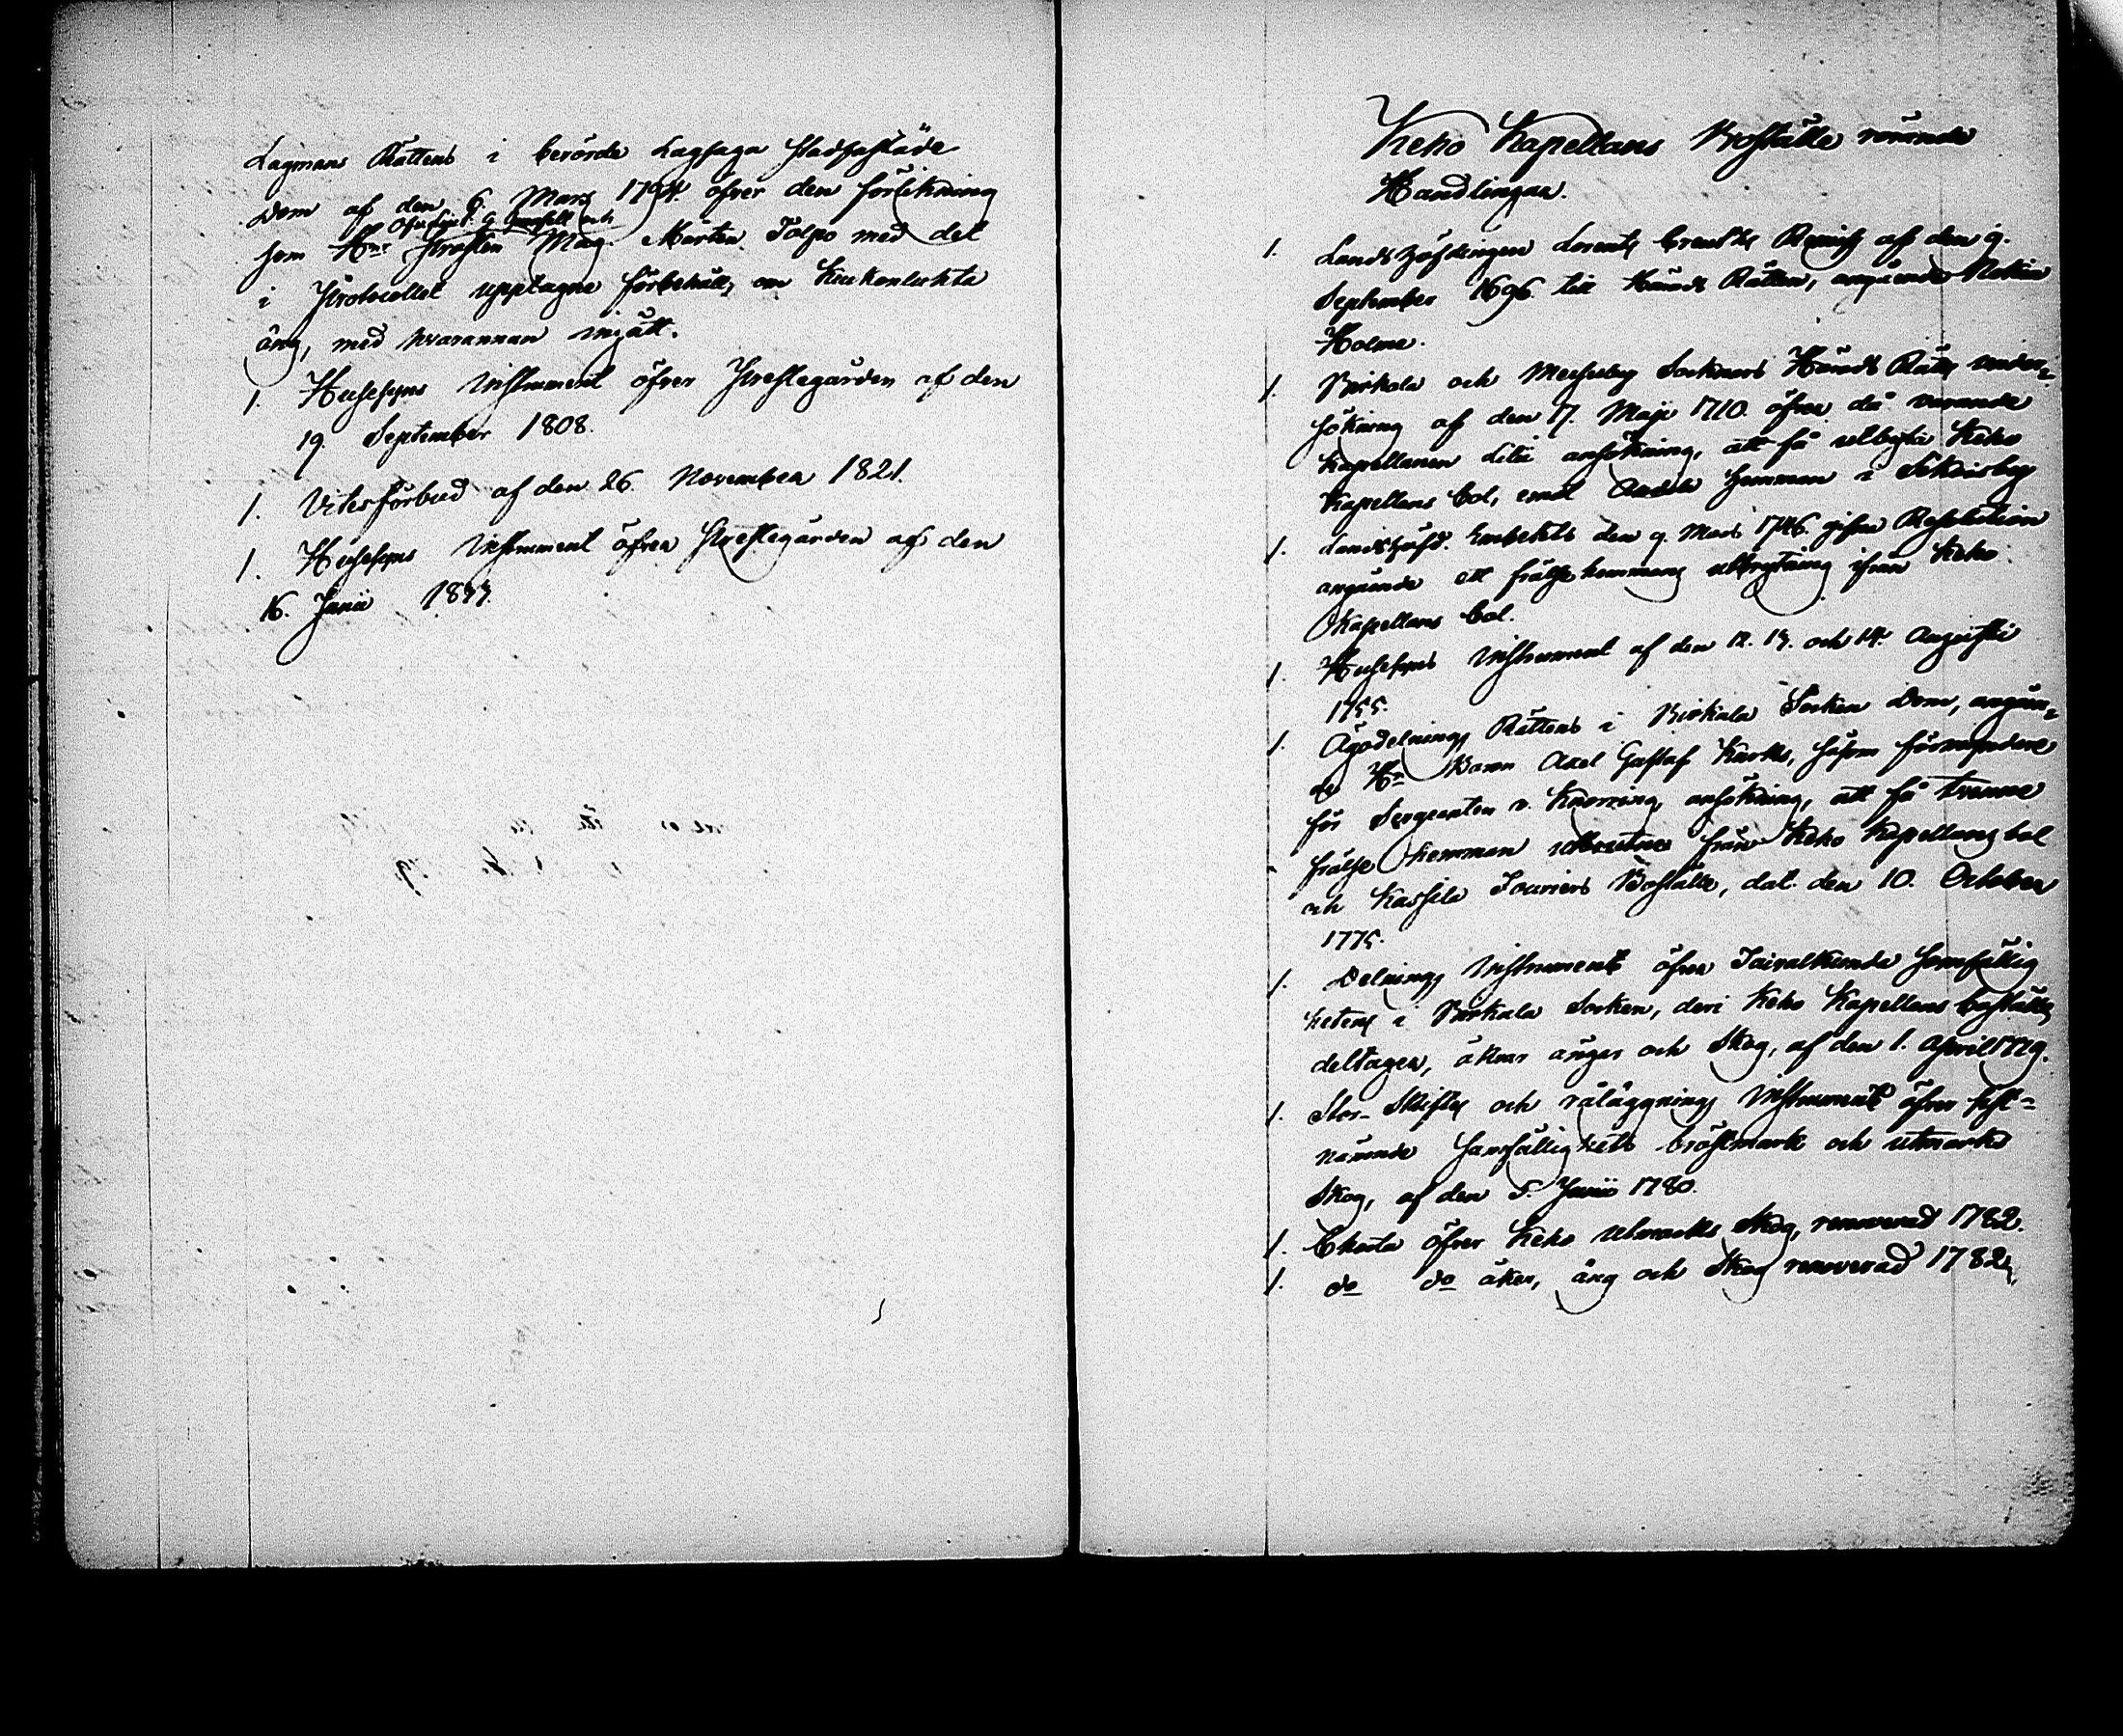 Lagmans Rättens i berörde Lagsaga stadfästade
Dom af den 6. Mars 1794. öfver den förlikning
Öfv: Lieut. G. och
som Hrr Prosten Mag. Mårten Tolpo med det
i Protocollet upptagne förbehåll, om Kiukonluhta
äng, med hvarannan ingått.
1. Husesyns Instrument öfver Prestegården af den
19. September 1808.
1. Vitesförbud af den 26. November 1821.
1. Husesyns Instrument öfver Prestegården af den
16. Junii 1833.
Keho Kapellans Boställe rörande
Handlingar.
1. Landshöfdingen Lorentz Creutz Remiss af den 9.
September 1696. till Härads Rätten, angående Nokia
Holme.
1. Birkala och Messuby Socknars Härads Rätts under=
sökning af den 17. Maji 1710. öfver då varande
Kapellanen ansökning, att få utbyta Keho
Kapellans bol, emot hemman i
1. Landshöfd. Embetets den 9. Mars 1746. gifne Resolution
angående ett frälse hemmans utbrytning ifrån Keho
Kapellans bol.
1. Husesyns Instrument af den 12. 13. och 14. Augusti
1755.
1. Ägodelnings Rättens i Birkala Socken Dom, angåen=
de Hr Baron Axel Gustaf Kurcks, såsom förmyndare
för Sergeanten v. Knorring, ansökning, att få tvenne
frälse hemman utbrutne från Keho Kapellans bol
och Kassila Fouriers Boställe, dat. den 10. October
1775.
1. Delnings Instrument öfver Taivalkunda samfällig
hetens i Birkala Socken, deri Keho Kapellans boställe
deltager, åkrar ängar och Skog, af den 1. April 1779.
1. Stor-Skiftes och råläggnings Instrument öfver sist=
nämnde Samfällighets bröstmark och utmarks
Skog, af den 5. Junii 1780.
1. Charta öfver Keho utmarks Skog, renoverad 1782.
1. do do åker, äng och Skog renoverad 1782.